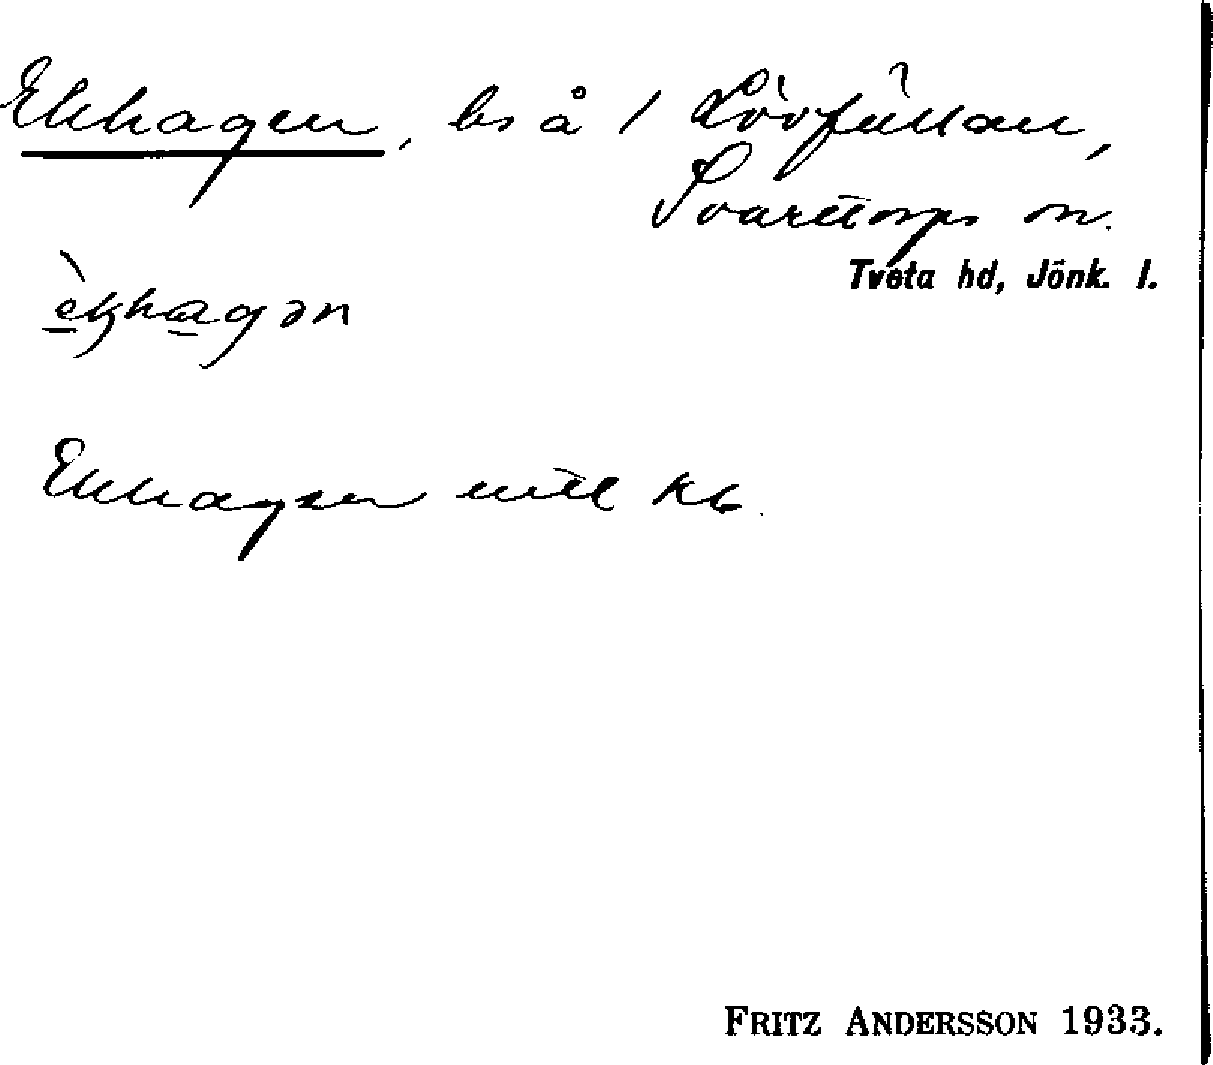 Ekhagen, bs å 1 Lövfällan,
Svarttorps sn.
Tveta hd, Jönk. l.
èkhagən
Ekhagen utt kb.
FRITZ ANDERSSON 1933.